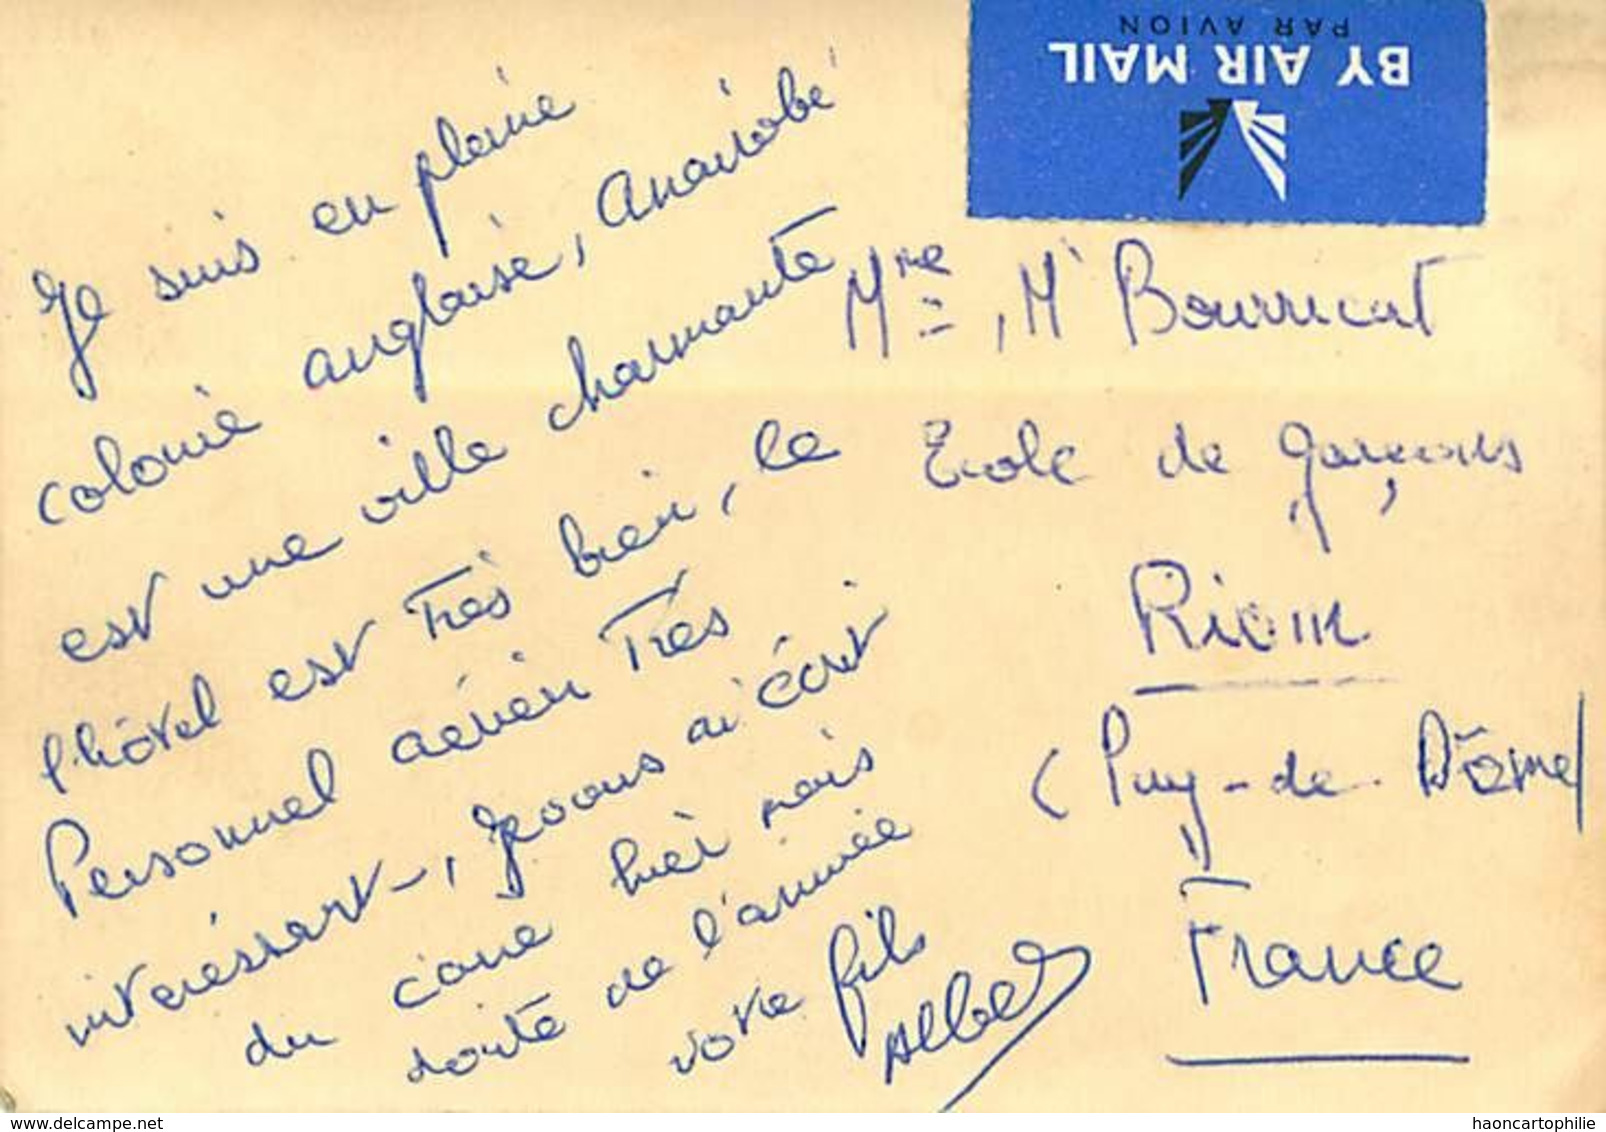 PAR AVION
BY AIR MAIL
Je suis en pleine
colonie anglaise, Anairobé
est une ville charmante
l'hôtel est Très bien, le
Personnel aérien Très
intéressant-, je vous ai écrit
du Caire hier mais
de l'année
votre fils
Albert
Mme, Mr Bourricat
Ecole de garçons
Riom
(Puy-de-Dôme)
France
delcampe.net
haoncartophilie